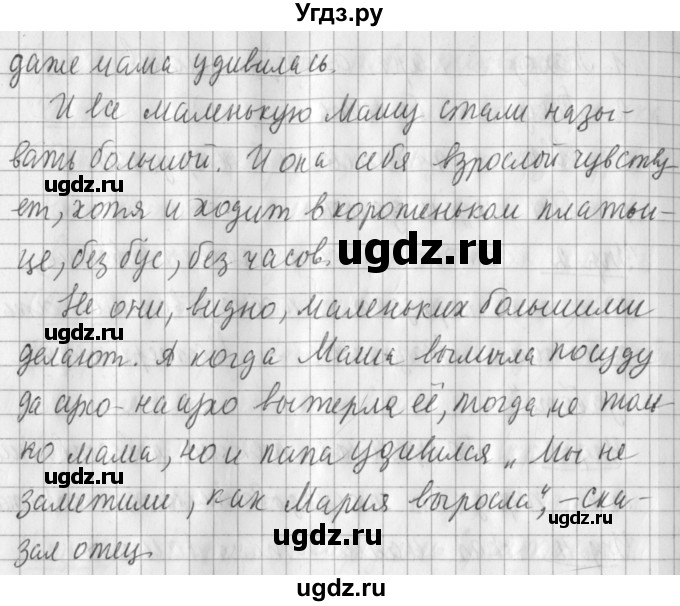 Угдз.ру
даже мама удивилась.
И все маленькую Машу стали назы-
вать большой. И она себя взрослой чувству-
ugdz.ru
ет, хотя и ходит в коротеньком платьи-
ugdz.ru
це, без бус, без часов.
ugdz.ru
Не они, видно, маленьких большими
ugdz.ru
делают. А когда Маша вымыла посуду
да сухо-насухо вытерла её, тогда не толь-
ко мама, но и папа удивился „Мы не
ugdz.ru
заметили, как Мария выросла“, – ска-
ugdz.ru
зал отец.
ugdz.ru